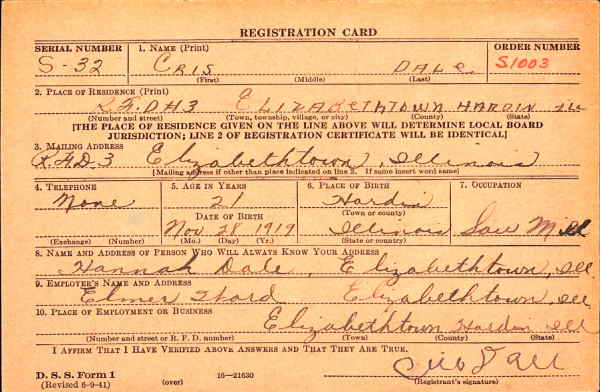 REGISTRATION CARD
SERIAL NUMBER 1. NAME (Print) ORDER NUMBER
S-32 CRIS DALE S1003
(First) (Middle) (Last)
2. PLACE OF RESIDENCE (Print)
R.F.D#3 ELIZABETHTOWN HARDIN ILL
(Number and street) (Town, township, village, or city) (County) (State)
[THE PLACE OF RESIDENCE GIVEN ON THE LINE ABOVE WILL DETERMINE LOCAL BOARD
JURISDICTION; LINE 2 OF REGISTRATION CERTIFICATE WILL BE IDENTICAL]
3. MAILING ADDRESS
R.F.D-3 Elizabethtown, Illinois
[Mailing address if other than place indicated on line 2. If same insert word same]
4. TELEPHONE 5. AGE IN YEARS 6. PLACE OF BIRTH 7. OCCUPATION
None 21 Hardin
DATE OF BIRTH (Town or county)
Nov 28 1919 Illinois Saw Mill
(Exchange) (Number) (Mo.) (Day) (Yr.) (State or country)
8. NAME AND ADDRESS OF PERSON WHO WILL ALWAYS KNOW YOUR ADDRESS
Hannah Dale, Elizabethtown, Ill
9. EMPLOYER'S NAME AND ADDRESS
Elmer Elizabethtown, Ill
10. PLACE OF EMPLOYMENT OR BUSINESS
Elizabethtown Hardin Ill
(Number and street or R. F. D. number) (Town) (County) (State)
I AFFIRM THAT I HAVE VERIFIED ABOVE ANSWERS AND THAT THEY ARE TRUE.
D. S. S. Form 1
(Revised 6-9-41) (over) 16—21630 (Registrant's signature)